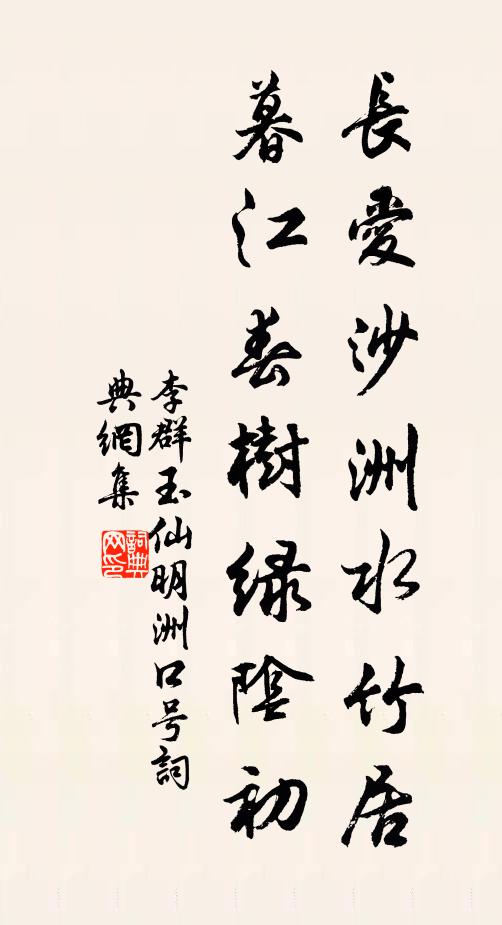 長愛沙洲水竹居
暮江春樹緑陰初
李群玉仙明洲口号詞
典網集
詞典
网印